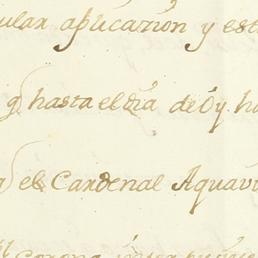 ular aplicazion y est
q. hasta el dia de oy. ha
el Cardenal Aquavi
Corona